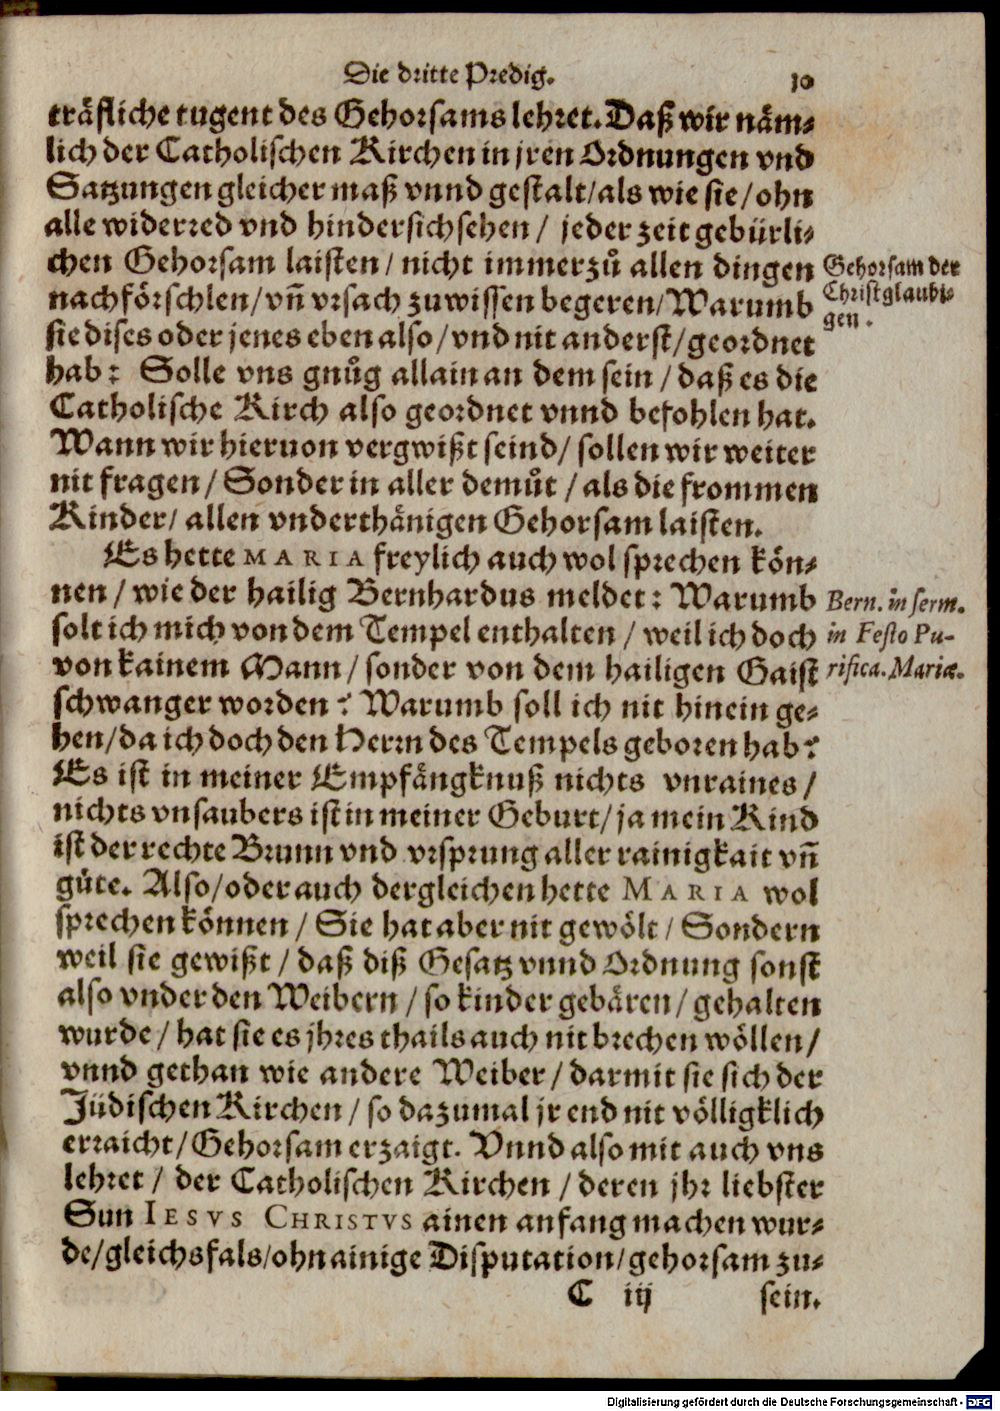 Die dritte Predig.
10
träfliche tugent des Gehorsams lehret. Daß wir näm-
lich der Catholischen Kirchen in jren Ordnungen vnd
Satzungen gleicher maß vnnd gestalt/als wie sie/ohn
alle widerred vnd hindersichsehen/ jeder zeit gebürli-
chen Gehorsam laisten/nicht immerzů allen dingen
Gehorsam der
Christglaubi-
gen.
nachförschlen/vñ vrsach zuwissen begeren/Warumb
sie dises oder jenes eben also/vnd nit anderst/geordnet
hab: Solle vns gnůg allain an dem sein/daß es die
Catholische Kirch also geordnet vnnd befohlen hat.
Wann wir hieruon vergwißt seind/sollen wir weiter
nit fragen/Sonder in aller demůt/als die frommen
Kinder/allen vnderthänigen Gehorsam laisten.
Es hette MARIA freylich auch wol sprechen kön-
nen/wie der hailig Bernhardus meldet: Warumb
Bern. in serm.
in Festo Pu-
rifica. Mariæ.
solt ich mich von dem Tempel enthalten/weil ich doch
von kainem Mann/sonder von dem hailigen Gaist
schwanger worden? Warumb soll ich nit hinein ge-
hen/da ich doch den Herrn des Tempels geboren hab?
Es ist in meiner Empfängknuß nichts vnraines/
nichts vnsaubers ist in meiner Geburt/ja mein Kind
ist der rechte Brunn vnd vrsprung aller rainigkait vñ
güte. Also/oder auch dergleichen hette MARIA wol
sprechen können/Sie hat aber nit gewölt/Sondern
weil sie gewißt/daß diß Gesatz vnnd Ordnung sonst
also vnder den Weibern/so kinder gebären/gehalten
wurde/hat sie es jhres thails auch nit brechen wöllen/
vnnd gethan wie andere Weiber/darmit sie sich der
Jüdischen Kirchen/so dazumal jr end nit völligklich
erraicht/Gehorsam erzaigt. Vnnd also mit auch vns
lehret/ der Catholischen Kirchen/deren jhr liebster
Sun IESVS CHRISTVS ainen anfang machen wur-
de/gleichsfals/ohn ainige Disputation/gehorsam zu-
C iij
sein.
Digitalisierung gefördert durch die Deutsche Forschungsgemeinschaft - DFG